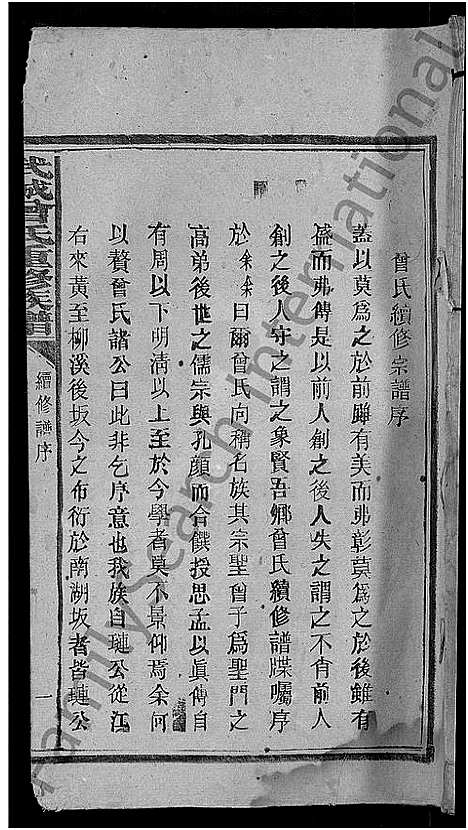 曾氏續修宗譜序
蓋以莫爲之於前雖有美而弗彰莫爲之於後雖有
盛而弗傳是以前人創之後人失之謂之不肖前人
創之後人守之謂之象賢吾鄉曾氏續修譜牒囑序
於余余曰爾曾氏向稱名族其宗聖曾子爲聖門之
高弟後世之儒宗與孔顏而合饌授思孟以眞傳自
有周以下明清以上至於今學者莫不景仰焉余何
以贅曾氏諸公曰此非乞序意也我族自璉公從江
右來黃至柳溪後坂今之布衍於南湖坂者皆璉公
武城曾氏重修族譜
續修譜序
一
FamilySearch International